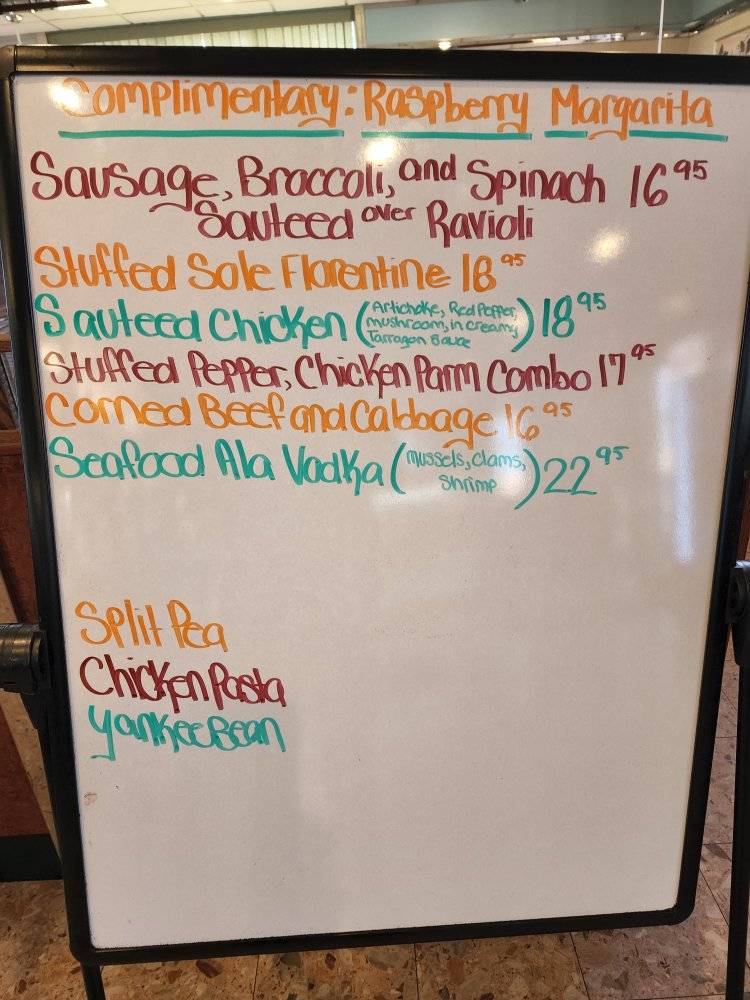 Complimentary: Raspberry Margarita
Sausage, Broccoli, and Spinach 16 95
Sauteed over Ravioli
Stuffed Sole Florentine 18 95
Sauteed Chicken (Artichoke, Red Pepper, mushroom, in creamy Tarragon Sauce) 18 95
Stuffed Pepper, Chicken Parm Combo 17 95
Corned Beef and Cabbage 16 95
Seafood Ala Vodka (mussels, clams, Shrimp) 22 95
Split Pea
Chicken Pasta
Yankee Bean